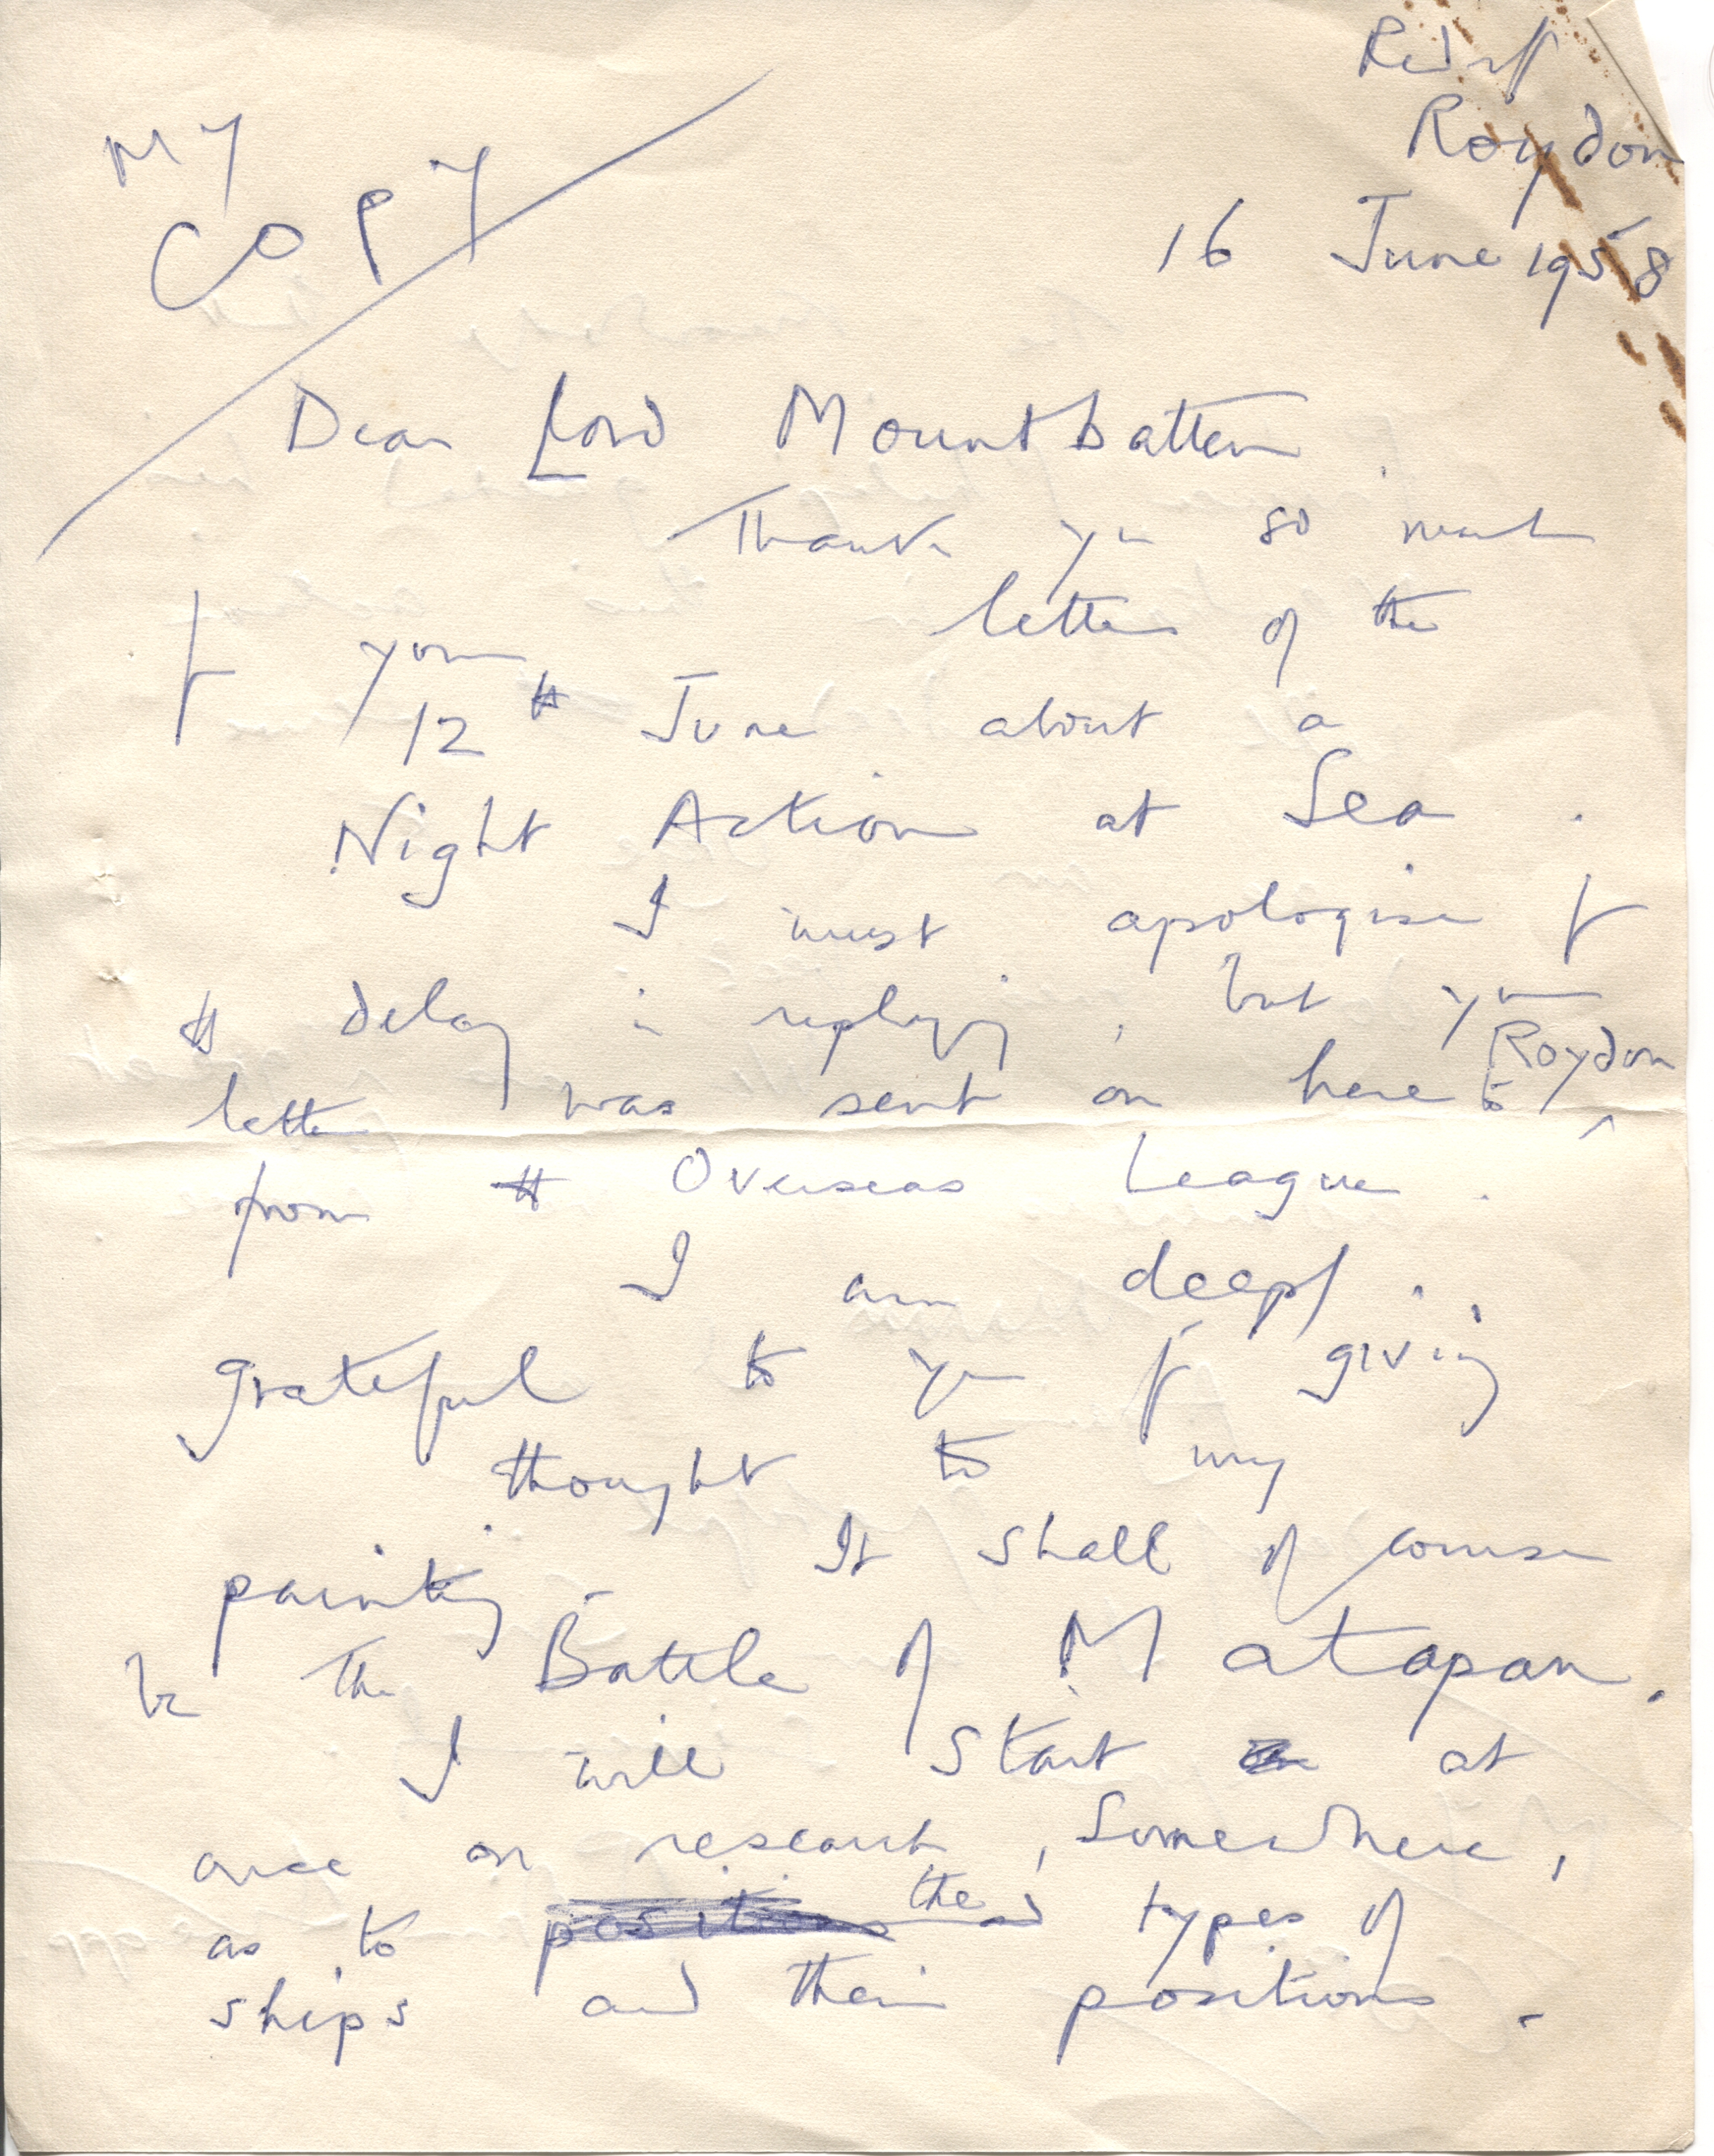 Roydon
16 June 1958
MY
COPY
Dear Lord Mountbatten.
Thank you so much
for your letter of the
12th June about a
Night Action at Sea.
I must apologise for
the delay in replying, but your
letter was sent on here to Roydon
from the Overseas League.
I am deeply
grateful to you for giving
thought to my
painting. It shall of course
be the Battle of Matapan.
I will start at
once on research, somewhere,
as to positions and the types of
ships and their positions.